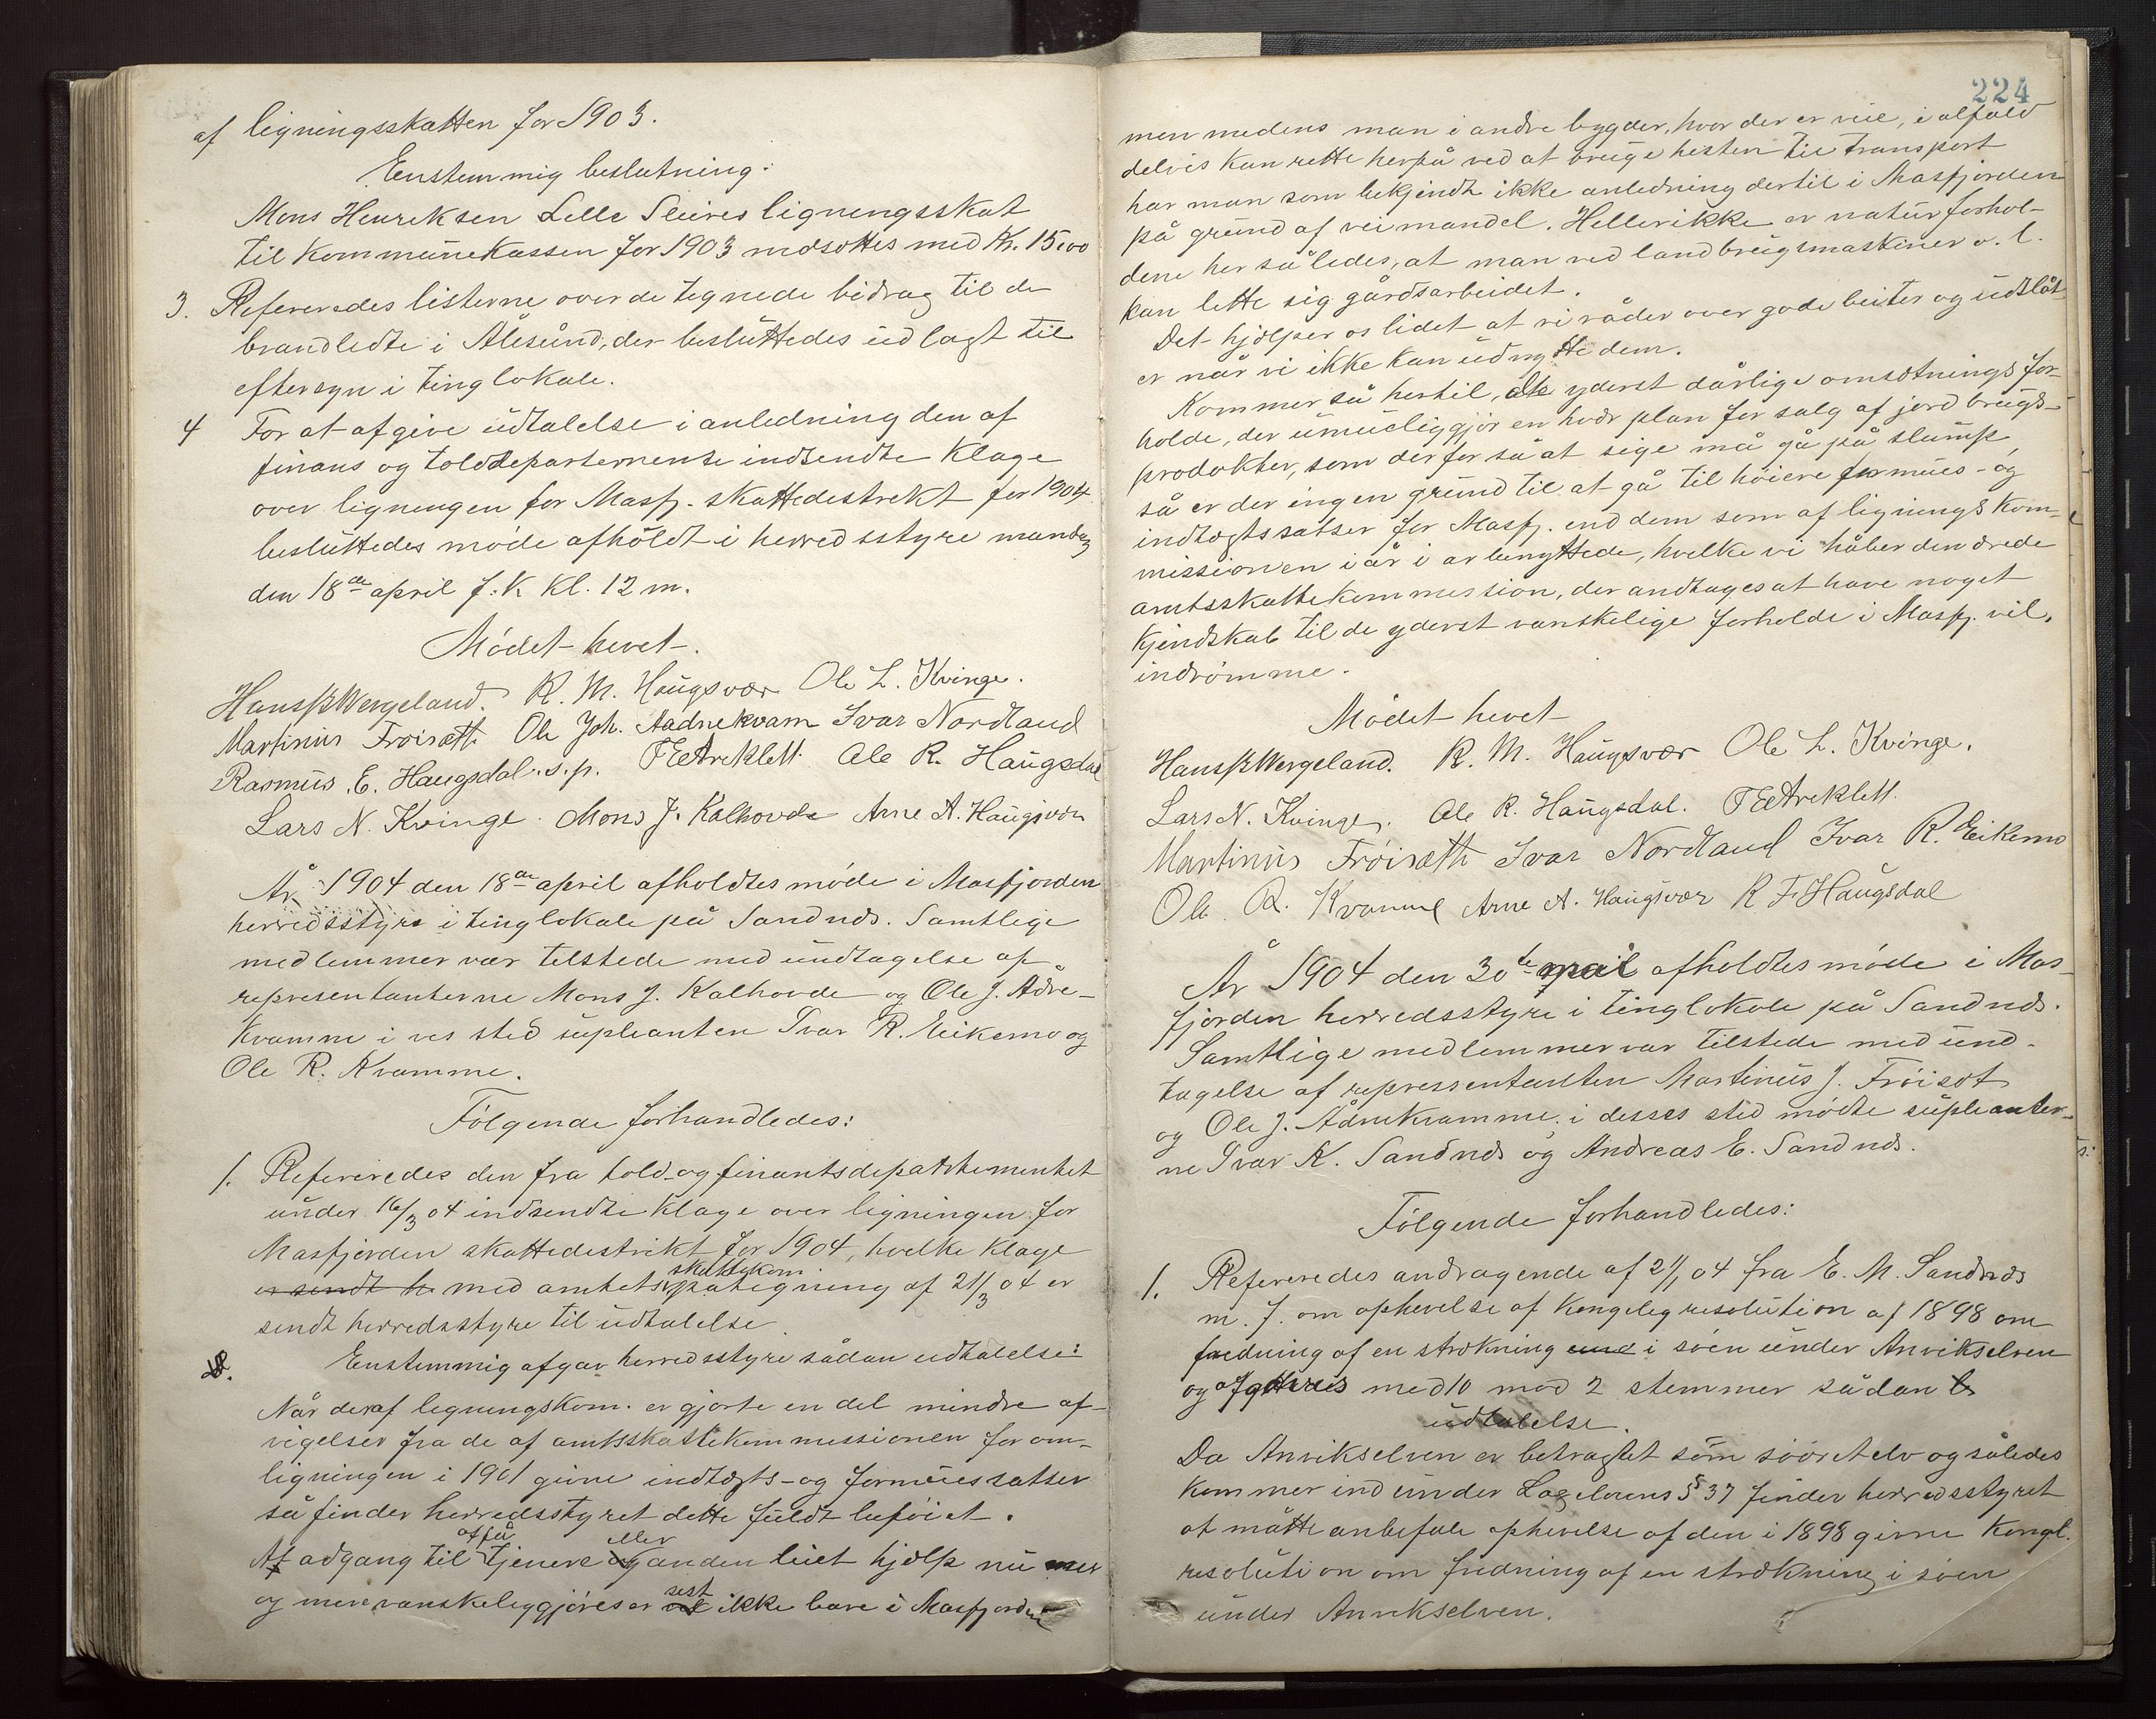 af ligningsskatten for 1903.
Enstemmig beslutning:
Mons Henriksen Lelle Sleires ligningsskat
til Kommunekassen for 1903 nedsættes med Kr. 15,00
3. Refereredes listerne over de tegnede bidrag til de
brandledte i Ålesund, der besluttedes udlagt til
eftersyn i tinglokale.
4 For at afgive udtalelse i anledning den af
finans og tolddepartemente indsendte Klage
over ligningen for Masfj. skattedestrekt for 1904
besluttedes møde afholdt i herredsstyre mandag
den 18de april f. K kl. 12 m.
Mødet hevet.
Hans B Wergeland. R. M. Haugsvær Ole L. Kvinge.
Martinius Frøisæth Ole Joh. Aadnekvam Ivar Nordland
Rasmus E. Haugsdal. s.p. T E Areklett Ole R. Haugsdal
Lars N. Kvinge. Mons J. Kalhovde Arne A. Haugsvær
År 1904 den 18de april afholdtes møde i Masfjorden
herredsstyre i tinglokale på Sandnds. Samtlige
medlemmer vær telstede med undtagelse af
representanterne Mons J. Kalhovde og Ole J. Ådne-
kvamme i ves sted supleanten Ivar R. Eikemo og
Ole R. Kvamme.
Følgende forhandledes:
1. Refereredes den fra told- og finantsdepartementet
under 16/3 04 indsendte Klage over ligningen for
Masfjorden skattedestrikt for 1904, hvelke Klage
er sendt h med amtets skattekom. påtegning af 21/3 04 er
sendt herredsstyre til udtalelse.
Enstemmig afgav herredsstyre sådan udtalelse:
Når der af legningskom. er gjorte en del mindre af-
vigelser fra de af amtsskattekommessionen for om-
ligningen i 1901 givne indtægts- og formuessatser
så finder herredsstyret dette fuldt beføiet.
At adgang til at få tjenere eller anden leiet hjelp nu mer
og mere vanskeleggjøres er sest ikke bare i Masfjorden
224
men medens man i andre bygder, hvor der er veie, i alfald
delvis kan rette herpå ved at bruge hesten til transport
har man som bekjendt ikke anledning dertil i Masfjorden
på grund af veimandel. Heller ikke er naturforhol-
dene her således, at man ved landbrugsmaskiner o. l.
kan lette sig gårdsarbeidet.
Det hjelper os lidet at vi råder over gode beiter og udslåt-
er når vi ikke kan udnytte dem.
Kommer så hertil, de yderst dårlige omsætningsfor-
holde, der umueliggjør en hver plan for salg af jordbrugs-
produkter, som derfor så at sige må gå på slump,
så er der ingen grund til at gå til høiere formues- og
indtægtssatser for Masfj. end dem som af lignings kom-
missionen i år i ar benyttede, hvelke vi håber den ærede
amtsskattekommession, der andtages at have noget
Kjendskab til de yderst vanskelige forholde i Masfj. vil,
indrømme.
Mødet hevet
Hans B Wergeland. R. M. Haugsvær Ole L. Kvinge.
Lars N. Kvinge. Ole R. Haugsdal. T E Areklett.
Martinius Frøisæth Ivar Nordland Ivar R. Eikemo
Ole R. Kvamme Arne A. Haugsvær R F Haugsdal
År 1904 den 30te mai afholdtes møde i Mas-
fjorden herredsstyre i tinglokale på Sandnds.
Samtlige medlemmer var tilstede med und-
tagelse af repressentanten Martinius J. Frøisæt
og Ole J. Ådnekvamme. i desses sted mødte supleanter-
ne Ivar K. Sandnds og Andreas E. Sandnds.
Følgende forhandledes:
1. Refereredes andragende af 2/1 04 fra E. M. Sandnds
m. f. om ophevelse af Kongeleg resolution af 1898 om
fredning af en strækning und i søen under Anvikselven
og afgaves med 10 mod 2 stemmer sådan
udtalelse.
Da Anvikselven er betragtet som sjøøretelv og således
kommer ind under Lagelovens § 37 finder herredsstyret
at måtte anbefale ophevelse af den i 1898 givne Kongl.
resolution om fredning af en strækning i søen
under Anvekselven.